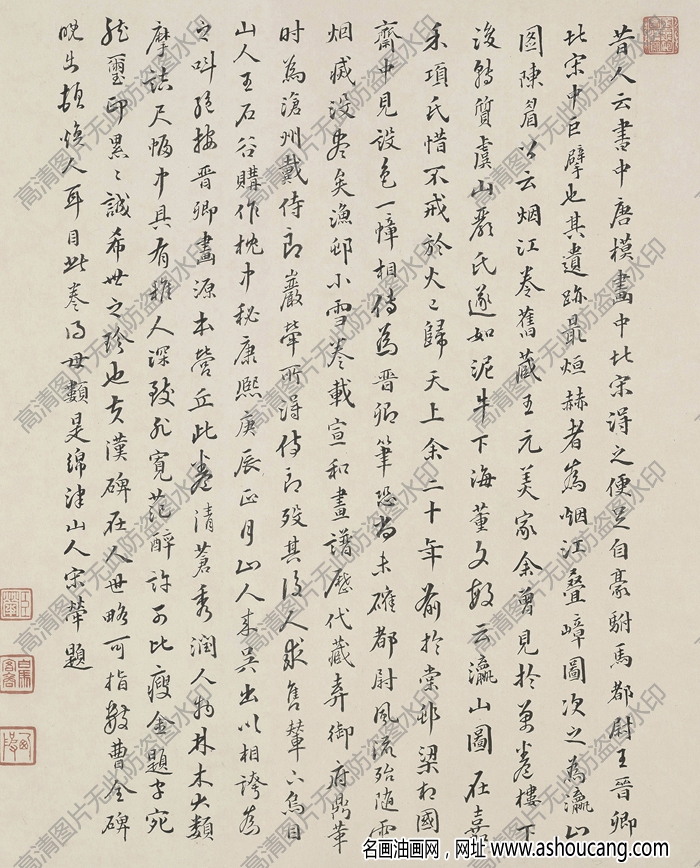 昔人云書中唐模畫中北宋得之便足自豪駙馬都尉王晉卿
北宋中巨擘也其遺跡最烜赫者為烟江疊嶂圖次之為瀛山
圖陳眉公云烟江卷舊藏王元美家余曾見於萬卷樓下
後轉質虞山嚴氏遂如泥牛下海董文敏云瀛山圖在嘉
禾項氏惜不戒於火已歸天上余二十年前於棠邨梁相國
齋中見設色一幛相傳為晉卿筆恐尚未確都尉風流殆隨雲
烟滅沒盡矣漁邨小雪卷載宣和畫譜歷代藏弆御府鼎革
時為滄州戴侍郎巖犖所得侍郎歿其後人求售輦下烏目
山人王石谷購作枕中秘康熙庚辰正月山人來吳出以相誇為
之叫絕按晉卿畫源本營丘此卷清蒼秀潤人物林木大類
摩詰尺幅中具有雅人深致寬范醉許比瘦金題字宛
然璽印累〻誠希世之珍也夫漢碑在人世略可指數曹全碑
晚出頓煥人耳目此卷得毋類是綿津山人宋犖題
高清图片无此防盗图水印
名画油画网，网址 www.ashoucang.com